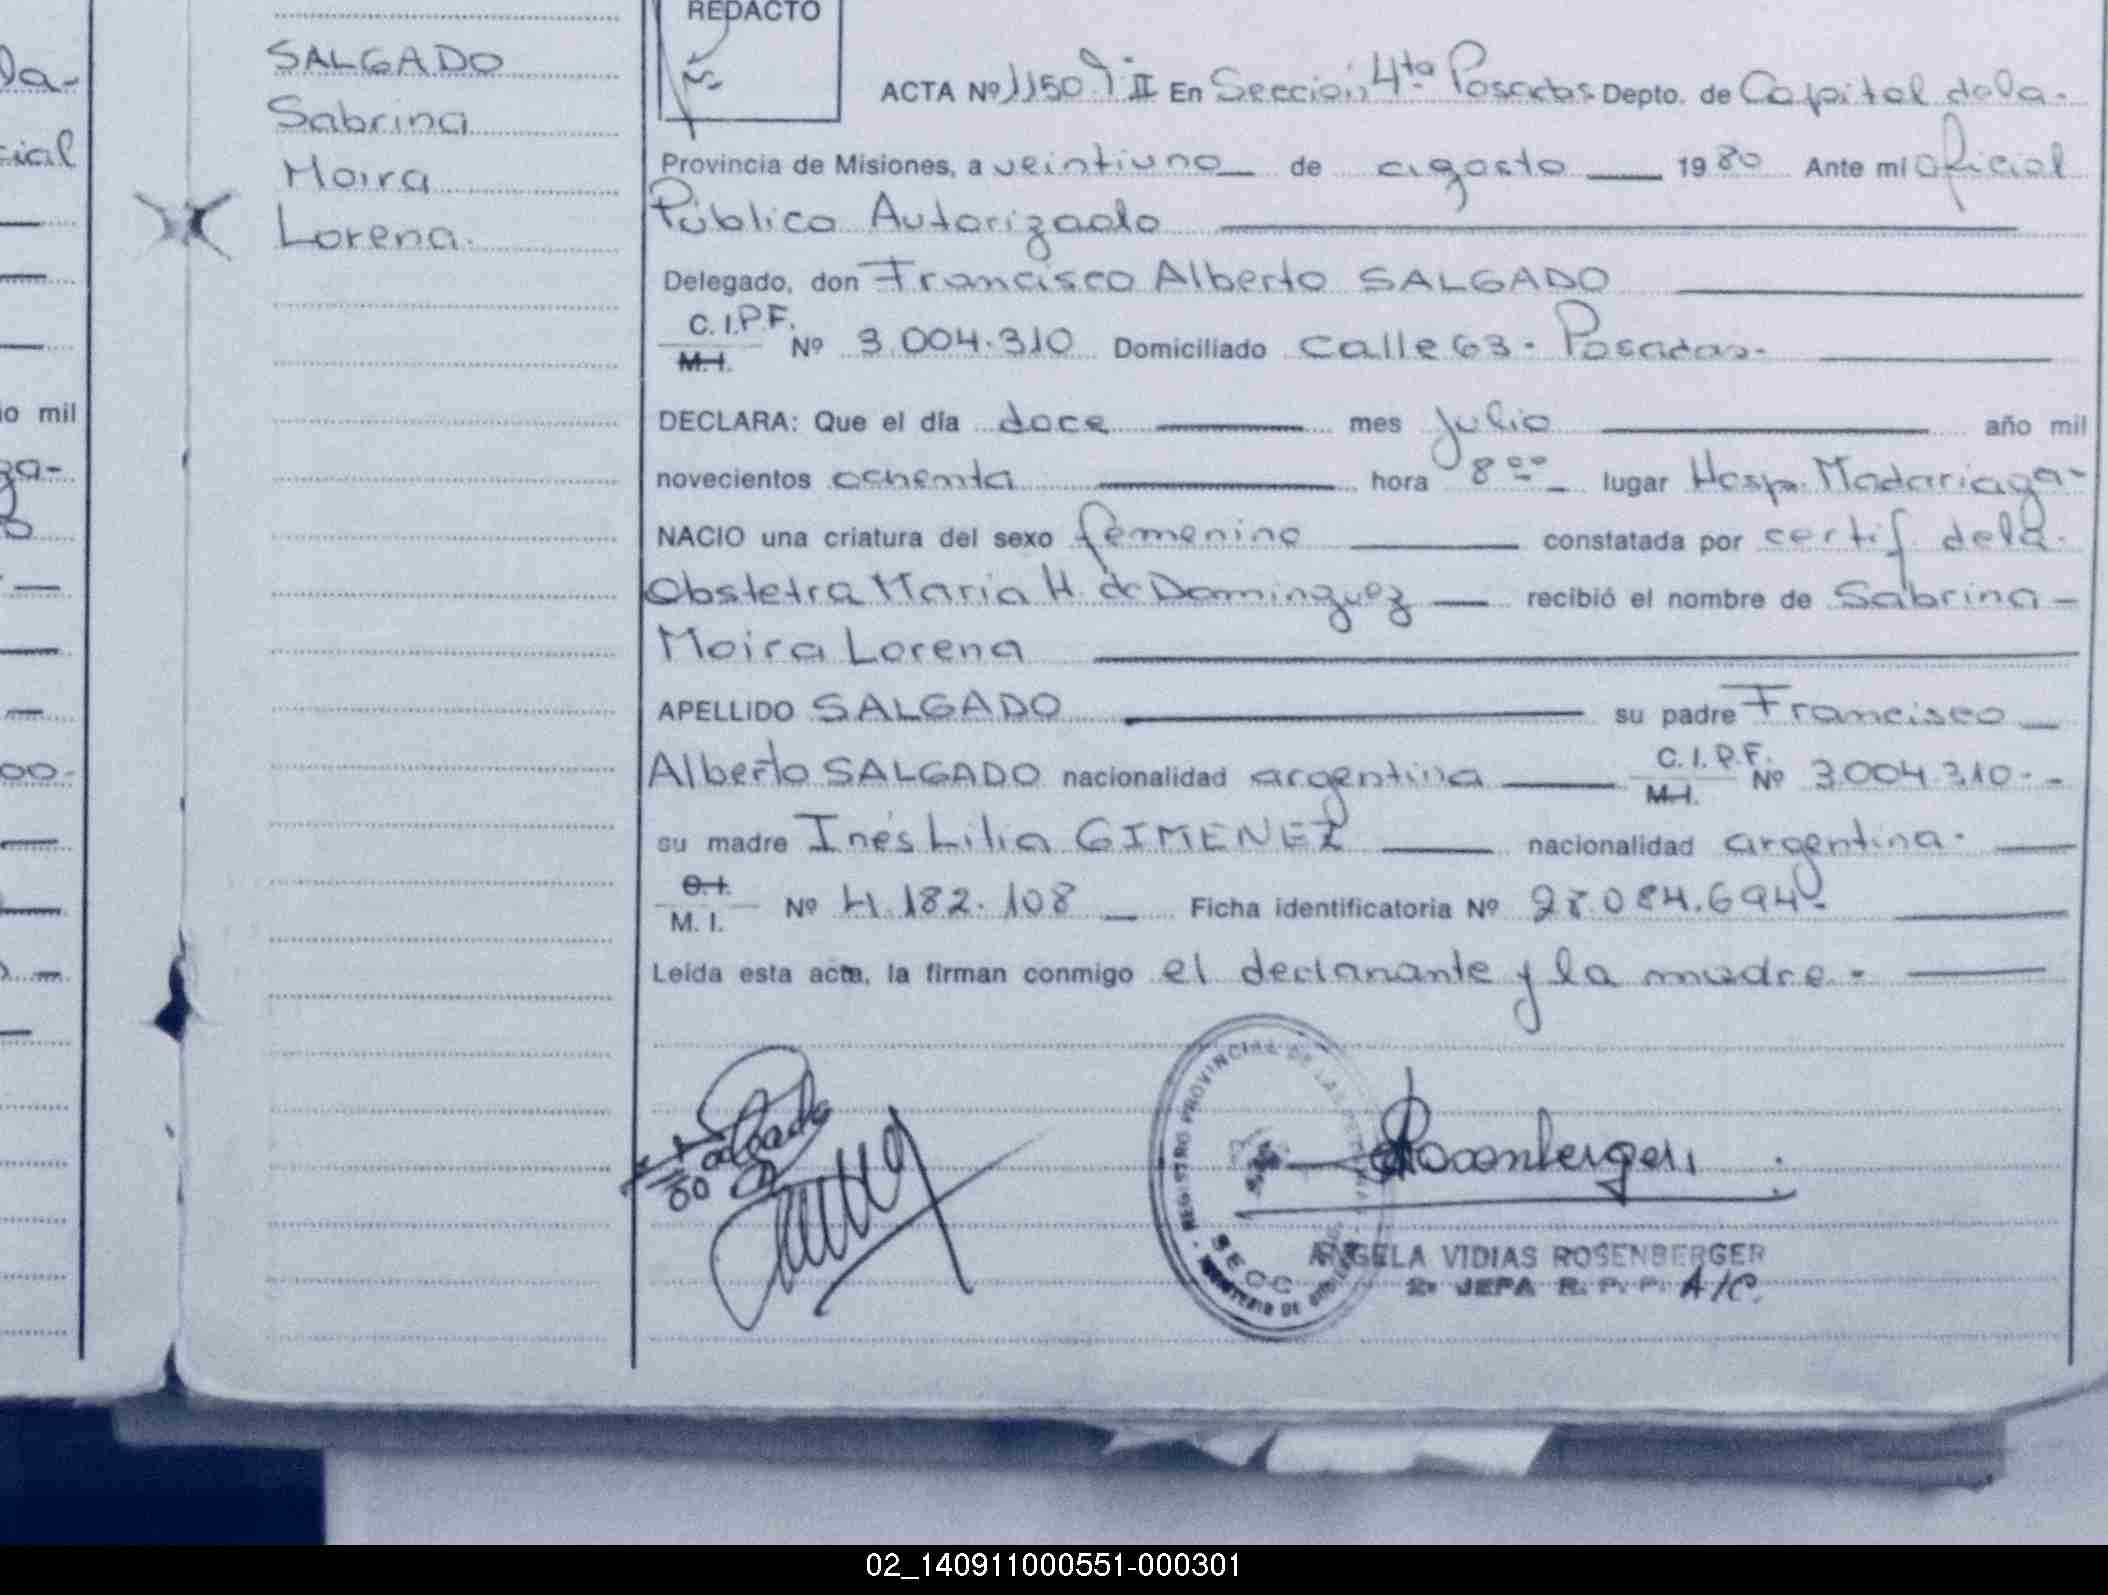 REDACTO
SALGADO
Sabrina
Moira
Lorena.
ACTA Nº 1150 T II En Sección 4ta Posadas Depto. de Capital de la
Provincia de Misiones, a veintiuno de agosto 1980 Ante mi oficial
Público Autorizado
Delegado, don Francisco Alberto SALGADO
C.I.P.F.
M.I. Nº 3.004.310 Domiciliado calle 63 - Posadas.
DECLARA: Que el día doce mes julio año mil
novecientos ochenta hora 8 00 lugar Hosp. Madariaga
NACIO una criatura del sexo femenino constatada por certif de la
Obstetra Maria H. de Dominguez recibió el nombre de Sabrina
Moira Lorena
APELLIDO SALGADO su padre Francisco
Alberto SALGADO nacionalidad argentina C.I.P.F. M.I. Nº 3.004.310
su madre Inés Lilia GIMENEZ nacionalidad argentina.
M. I. Nº 4.182.108 Ficha identificatoria Nº 28.084.694
Leída esta acta, la firman conmigo el declarante y la madre.
REGISTRO PROVINCIAL DE LAS
SECC
Rosenberger
ANGELA VIDIAS ROSENBERGER
2º JEFA R. P. P. A/C.
02_140911000551-000301